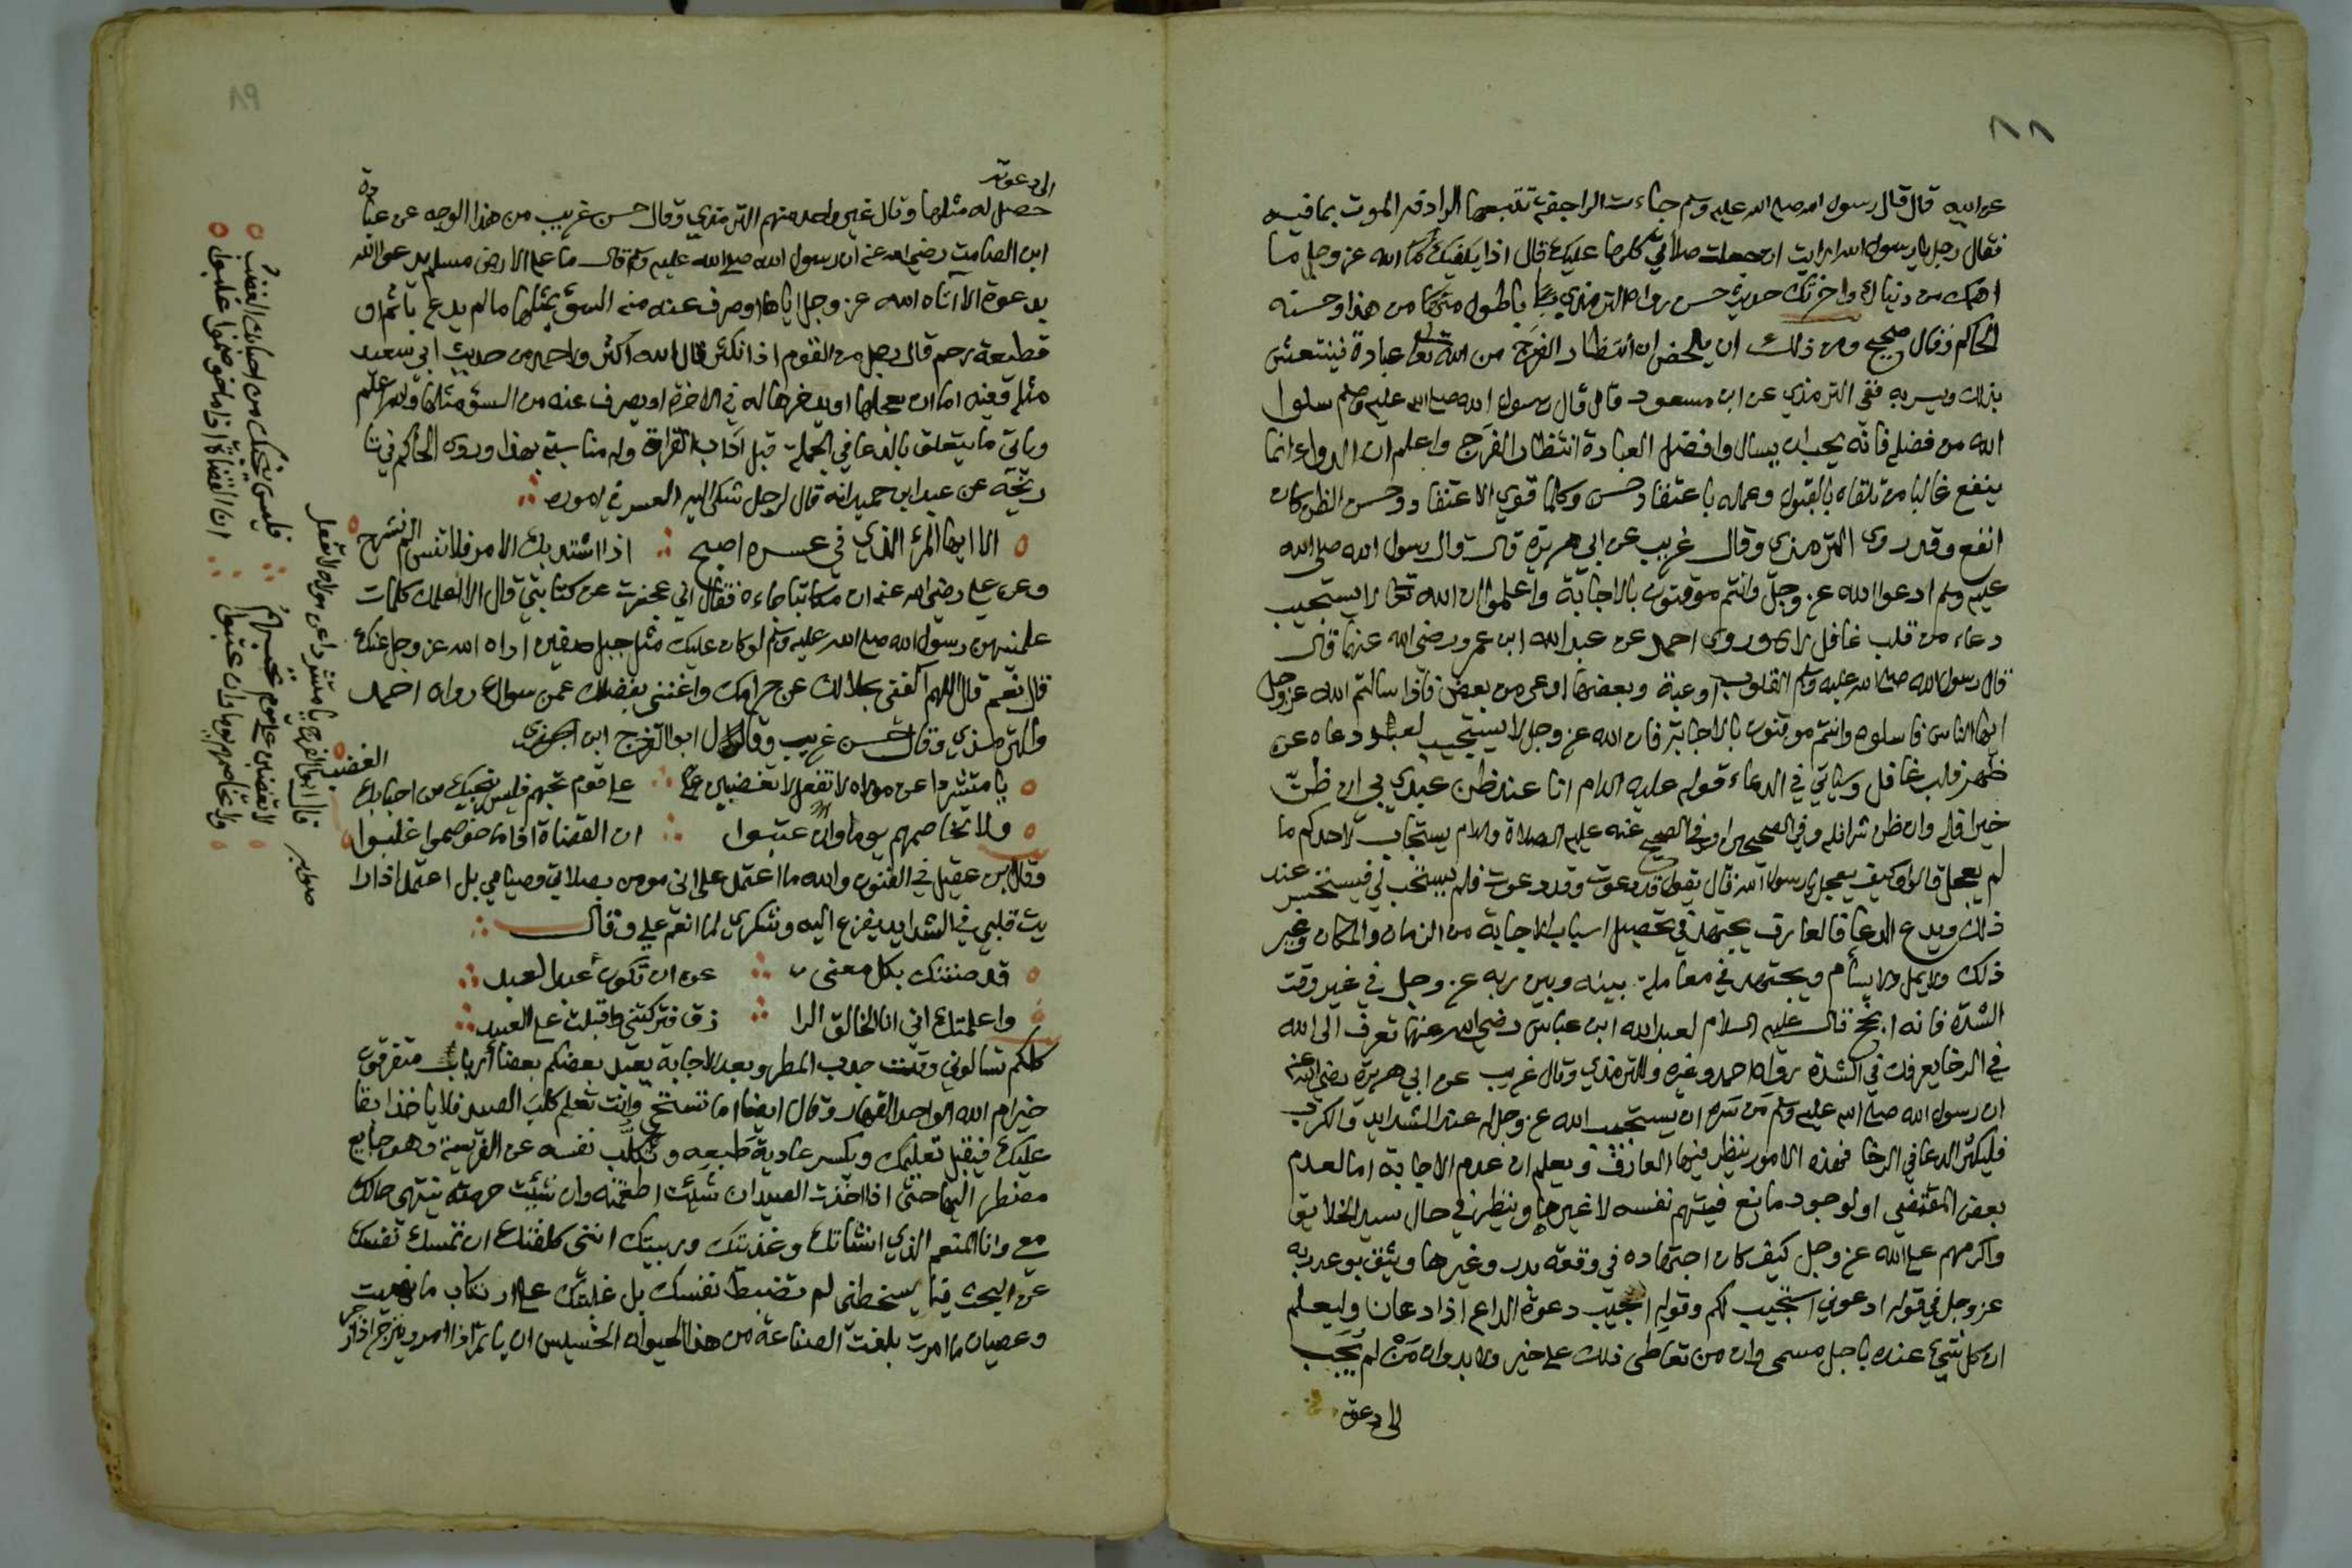 ٨٨
عن ابيه قال قال رسول الله صلى الله عليه وسلم جاءت الراجفة تتبعها الرادفة الموت بما فيه
فقال رجل يا رسول الله ارايت ان جعلت صلاتي كلها عليك قال اذا يكفيك الله عز وجل ما
اهمك من دنياك واخرتك حديث حسن رواه الترمذي باطول من هذا وحسنه
الحاكم وقال صحيح ومن ذلك ان انتظار الفرج من الله تعالى عبادة فينتعش
بذلك ويسر به ففي الترمذي عن ابن مسعود قال قال رسول الله صلى الله عليه وسلم سلوا
الله من فضله فانه يحب ان يسال وافضل العبادة انتظار الفرج واعلم ان الدواء انما
ينفع غالبا من تلقاه بالقبول وعمله باعتقاد حسن وكلما قوي الاعتقاد وحسن الظن كان
انفع وقد روى الترمذي وقال غريب عن ابي هريرة قال قال رسول الله صلى الله
عليه وسلم ادعوا الله عز وجل وانتم موقنون بالاجابة واعلموا ان الله تعالى لا يستجيب
دعاء من قلب غافل لاه وروى احمد عن عبد الله ابن عمرو رضي الله عنهما قال
قال رسول الله صلى الله عليه وسلم القلوب اوعية وبعضها اوعى من بعض فاذا سالتم الله عز وجل
ايها الناس فاسلوه وانتم موقنون بالاجابة فان الله عز وجل لا يستجيب لعبد دعاه عن
ظهر قلب غافل وسياتي في الدعاء قوله عليه السلام انا عند ظن عبدي بي ان ظن
خيرا فله وان ظن شرا فله وفي الصحيحين او في الصحيح عنه عليه الصلاة والسلام يستجاب لاحدكم ما
لم يعجل قالوا وكيف يعجل يا رسول الله قال يقول قد دعوت وقد دعوت فلم يستجب لي فيستحسر عند
ذلك ويدع الدعا فالعارف يجتهد في تحصيل اسباب الاجابة من الزمان والمكان وغير
ذلك ولا يمل ولا يسأم ويجتهد في معاملة بينه وبين ربه عز وجل في غير وقت
الشدة فانه انجح قال عليه السلام لعبد الله ابن عباس رضي الله عنهما تعرف الى الله
في الرخا يعرفك في الشدة رواه احمد وغيره وللترمذي وقال غريب عن ابي هريرة رضي الله عنه
ان رسول الله صلى الله عليه وسلم من سره ان يستجيب الله عز وجل له عند الشدايد والكرب
فليكثر الدعا في الرخا فهذه الامور ينظر فيها العارف ويعلم ان عدم الاجابة اما لعدم
بعض المقتضي او لوجود مانع فيتهم نفسه لا غيرها وينظر في حال سيد الخلايق
واكرمهم على الله عز وجل كيف كان اجتهاده في وقعة بدر وغيرها ويثق بوعد ربه
عز وجل في قوله ادعوني استجيب لكم وقوله اجيب دعوة الداع اذا دعان وليعلم
ان كل شيء عنده باجل مسمى وان من تعاطى ذلك على خير ولا بد وان من لم يجب
الى دعوته
٨٩
الى دعوته
حصل له مثلها وقال غير واحد منهم الترمذي وقال حسن غريب من هذا الوجه عن عبادة
ابن الصامت رضي الله عنه ان رسول الله صلى الله عليه وسلم قال ما على الارض مسلم يدعو الله
بدعوة الا اتاه الله عز وجل اياها او صرف عنه من السوء بمثلها ما لم يدع باثم او
قطيعة رحم قال رجل من القوم اذا نكثر قال الله اكثر ولاحمد من حديث ابي سعيد
مثله وفيه اما ان يعجلها او يدخرها له في الاخرة او يصرف عنه من السوء مثلها والله اعلم
وياتي ما يتعلق بالدعا في الجملة قبل اداب القراة وله مناسبة بهذا وروى الحاكم في تا
ريخه عن عبد ابن حميد انه قال لرجل شكى اليه العسر في اموره
الا ايها المرء الذي في عسره اصبح ∴ اذا اشتد بك الامر فلا تنس الم نشرح
وعن علي رضي الله عنه ان مكاتبا جاءه فقال اني عجزت عن كتابتي قال الا اعلمك كلمات
علمنيهن رسول الله صلى الله عليه وسلم لو كان عليك مثل جبل صفين اداه الله عز وجل عنك
قال نعم قال اللهم اكفني بحلالك عن حرامك واغنني بفضلك عمن سواك رواه احمد
والترمذي وقال حسن غريب وقال ابو الفرج ابن الجوزي
يا متشردا عن مولاه لا تفعل لا تغضبن على ∴ على قوم تحبهم فليس ينجيك من احبابك الغضب
ولا تخاصمهم يوما وان عتبوا ∴ ان القضاة اذا ما خوصموا غلبوا
وقال ابن عقيل في الفنون والله ما اعتمد على اني مومن بصلاتي وصيامي بل اعتمد اذا را
يت قلبي في الشدايد يفزع اليه وشكري لما انعم علي وقال
قد صنتك بكل معنى ∴ عن ان تكون عبدا لعبد
واعلمتك اني انا الخالق الرا ∴ زق فتركتني واقبلت على العبيد
كلكم تسالوني وقت جدب المطر وبعد الاجابة يعبد بعضكم بعضا أرباب متفرقون
خير ام الله الواحد القهار وقال ايضا اما تستحي وانت تعلم كلب الصيد فلا ياخذ ابقا
عليك فيقبل تعليمك ويكسر عادية طبعه وتكلب نفسه عن الفريسة وهو جايع
مضطر اليها حتى اذا اخذت الصيد ان شئت اطعمته وان شئت حرمته ينتهي حالك
معي وانا المنعم الذي انشاتك وغذيتك وربيتك انني كلفتك ان تمسك نفسك
عن البحث فيما يسخطني لم تضبط نفسك بل غلبتك على ارتكاب ما نهيت
وعصيان ما امرت بلغت الصناعة من هذا الحيوان الخسيس ان ياتمر اذا امر وينزجر اذا زجر
قال ابو الفرج يا متشردا عن مولاه لا تفعل
لا تغضبن على قوم تحبهم ∴ فليس ينجيك من احبابك الغضب
ولا تخاصمهم يوما وان عتبوا ∴ ان القضاة اذا ما خوصموا غلبوا
صوابه